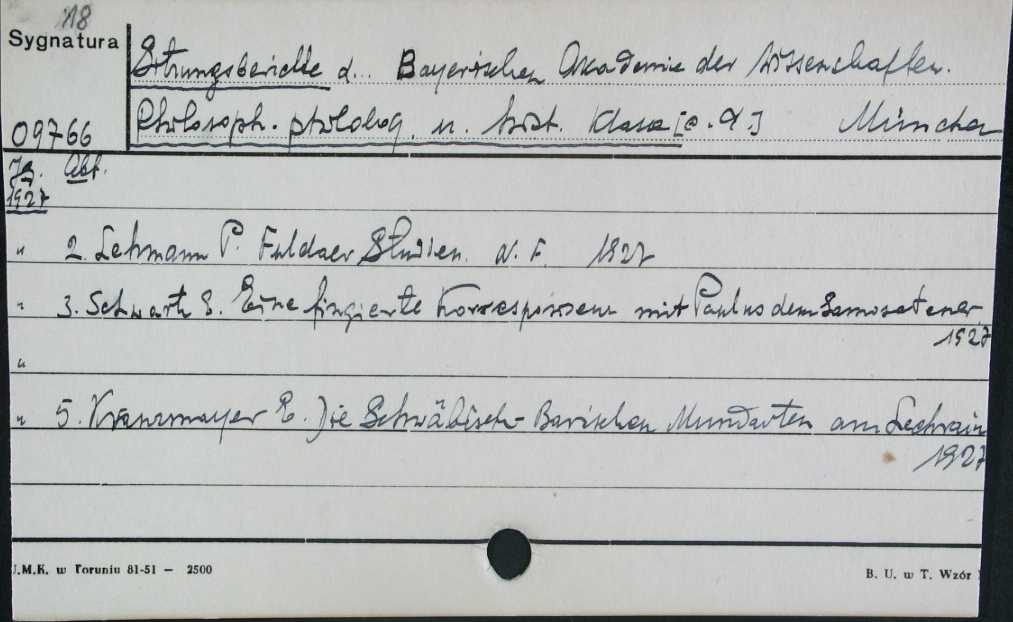 118
Sygnatura
Sitzungsberichte d... Bayerischen Akademie der Wissenschaften.
09766
Philosoph. philolog. u. hist. Klasse München
Jg. Abt.
1927
" 2. Lehmann P. Fuldaer Studien. N. F. 1927
" 3. Schwartz E. Eine fingierte Korrespondenz mit Paulus dem Samosatener
1927
"
" 5. Kranzmayer E. Die Schwäbisch-Bairischen Mundarten am Lechrain
1927
U.M.K. w Toruniu 81-51 — 2500
B. U. w T. Wzór